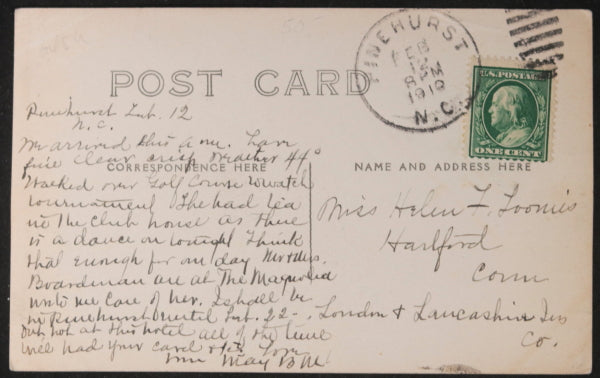 PINEHURST
FEB
8 AM
1910
N.C.
U.S. POSTAGE
ONE CENT
POST CARD
CORRESPONDENCE HERE
NAME AND ADDRESS HERE
Pinehurst Feb. 12
N.C.
We arrived this a.m. have
fine clear crisp weather 44°
Walked over Golf Course to watch
tournament The had tea
in the club house as there
is a dance on tonight I think
that enough for one day
Boardman are at The
write me care of her. I shall be
in Pinehurst until Feb. 22-
but not at this hotel all of the time
Well had your card
May
Miss Helen F. Loomis
Hartford
Conn
London & Lancashire Ins
Co.